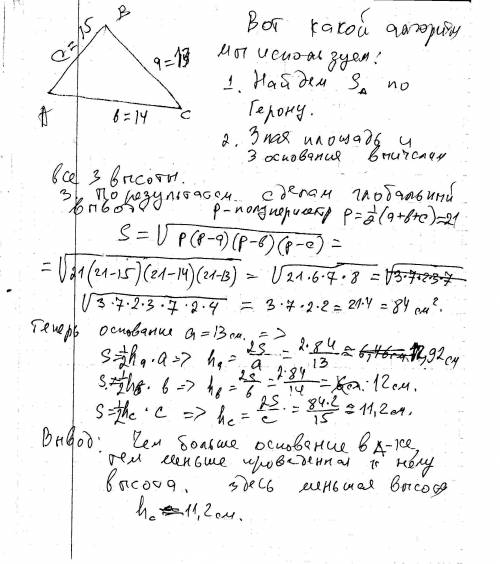 B
c=15
a=13
A
b=14
C
Вот какой алгоритм
мы используем:
1. Найдем S△ по
Герону.
2. Зная площадь и
3 основания вычислим
все 3 высоты.
3. По результатам сделаем глобальный
вывод
p-полупериметр p=½(a+b+c)=21
S=√p(p-a)(p-b)(p-c) =
=√21(21-15)(21-14)(21-13) = √21·6·7·8 = √3·7·2·3·7
√3·7·2·3·7·2·4 = 3·7·2·2=21·4=84 см².
Теперь основание a=13см. =>
S=½hₐ·a => hₐ = 2S/a = 2·84/13 ≈ 12,92см
S=½h_b·b => h_b = 2S/b = 2·84/14 = 12см.
S=½h_c·c => h_c = 2S/c = 84·2/15 = 11,2см.
Вывод: Чем больше основание в △-ке,
тем меньше проведенная к нему
высота. Здесь меньшая высота
h_c = 11,2см.